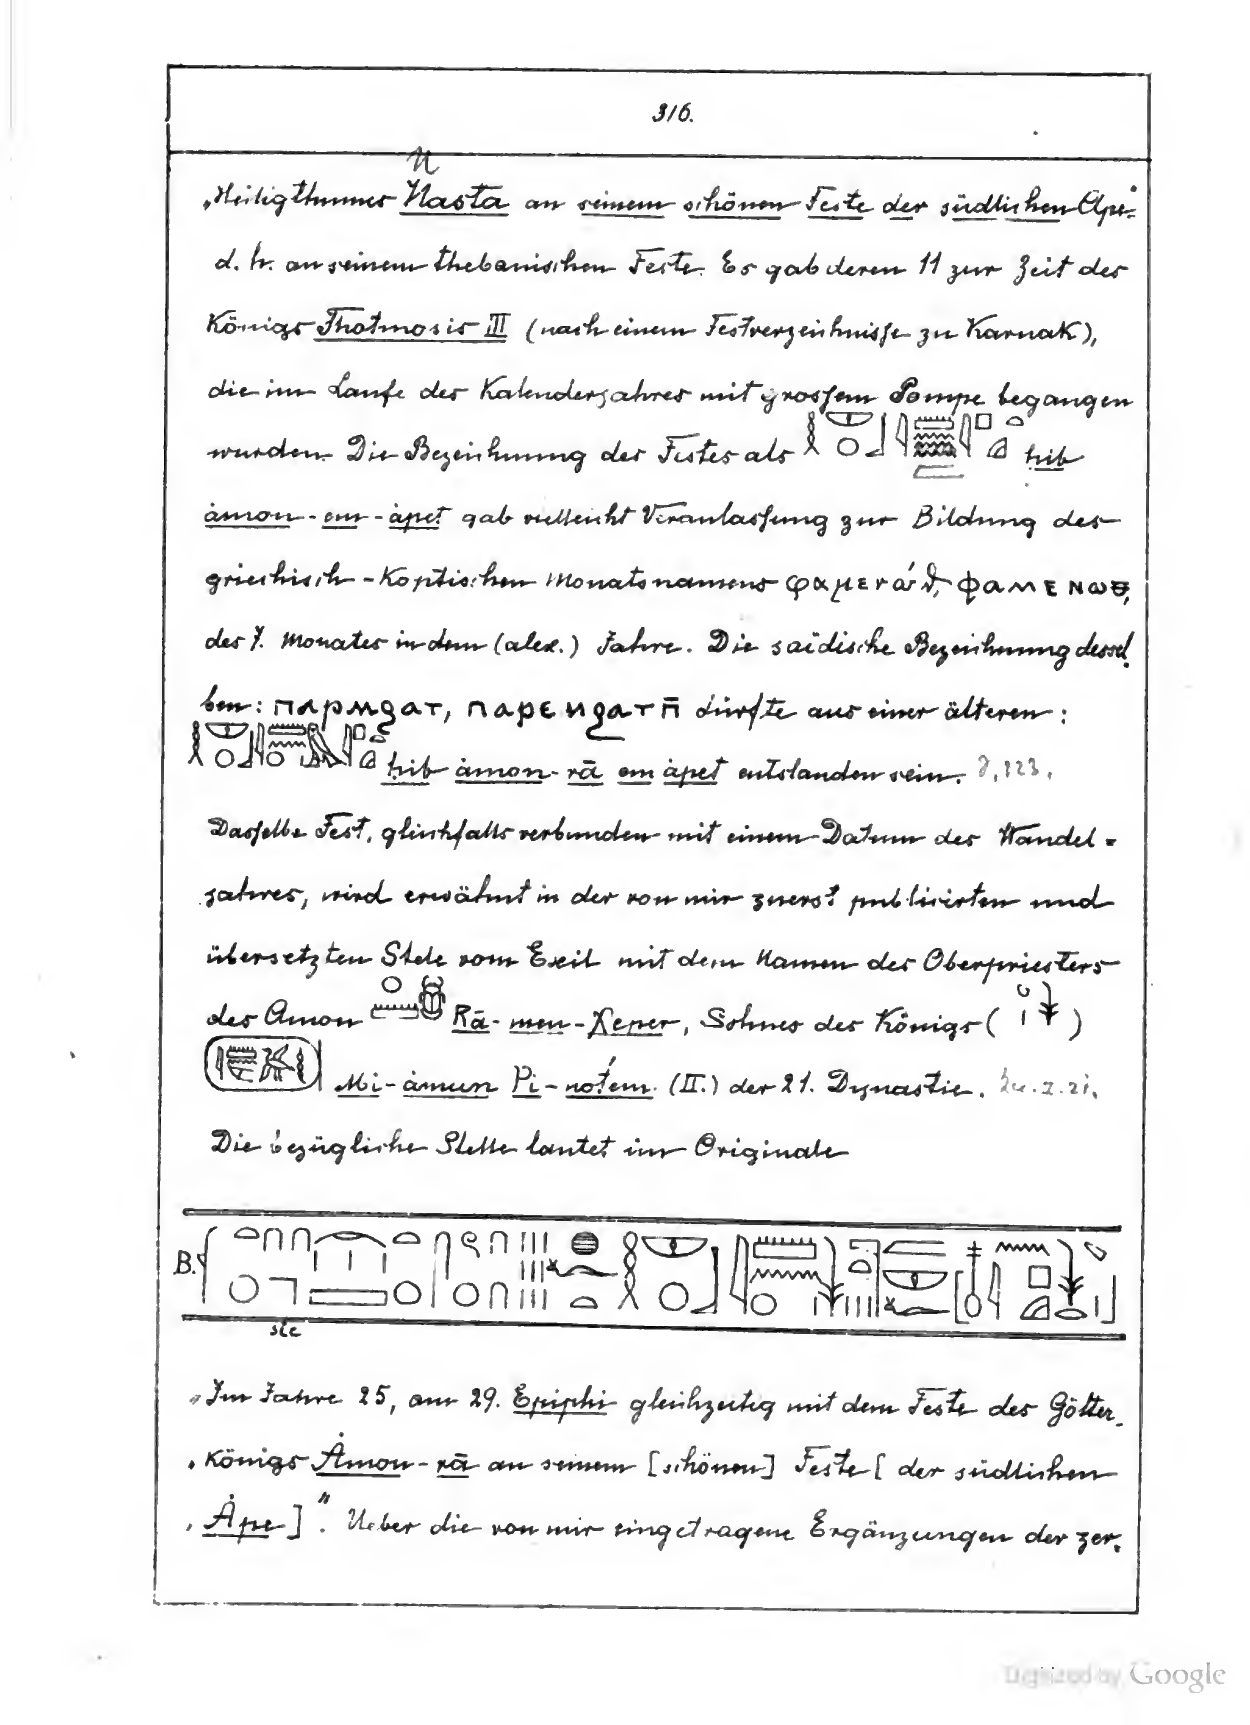 316.
N
„Heiligthumes Nasta an seinem schönen Feste der südlichen Ape=
d. h. an seinem thebanischen Feste. Es gab deren 11 zur Zeit des
Königs Thotmosis III (nach einem Festverzeichnisse zu Karnak),
die im Laufe des Kalenderjahres mit grossem Pompe begangen
wurden. Die Bezeichnung des Festes als hib
àmon-em-àpet gab vielleicht Veranlassung zur Bildung des
griechisch-koptischen Monatsnamens φαμενώθ, ϕⲁⲙⲉⲛⲱⲑ,
des 7. Monates in dem (alex.) Jahre. Die saïdische Bezeichnung dessel
ben: ⲡⲁⲣⲙϩⲁⲧ, ⲡⲁⲣⲉⲛϩⲁⲧⲡ̄ dürfte aus einer älteren:
hib àmon-rā em àpet entstanden sein.
Dasselbe Fest, gleichfalls verbunden mit einem Datum des Wandel=
jahres, wird erwähnt in der von mir zuerst publicirten und
übersetzten Stele vom Exil mit dem Namen des Oberpriesters
des Amon Rā-men-χeper, Sohnes des Königs ( )
Mi-àmun Pi-notem (II.) der 21. Dynastie.
Die bezügliche Stelle lautet im Originale
B.
sic
„Im Jahre 25, am 29. Epiphi gleichzeitig mit dem Feste des Götter-
„königs Àmon-rā an seinem [schönen] Feste [der südlichen
„Àpe]". Ueber die von mir eingetragene Ergänzungen der zer-
Digitized by Google